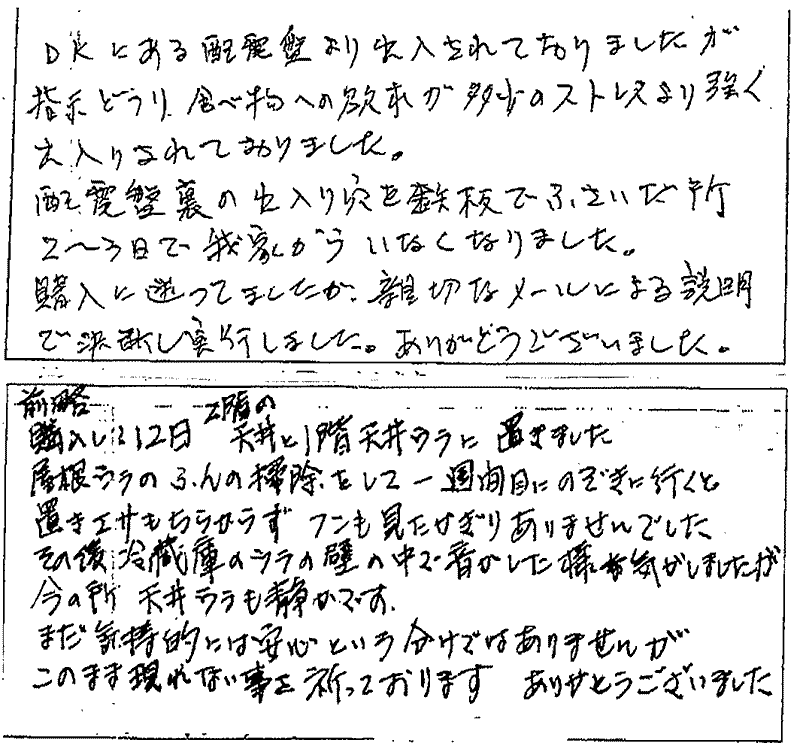 DKにある配電盤より出入されておりましたが
指示どうり、食べ物への欲求が多少のストレスより強く
出入りされておりました。
配電盤裏の出入り穴を鉄板でふさいだ所
2〜3日で我家からいなくなりました。
購入に迷ってましたが、親切なメールによる説明
で決断し実行しました。ありがどうございました。
前略
購入し12日 2階の天井と1階天井ウラに置きました
屋根ウラのふんの掃除をして一週間目にのぞきに行くと
置きエサもちらからず フンも見たかぎりありませんでした
その後冷蔵庫のウラの壁の中で音がした様な気がしましたが
今の所 天井ウラも静かです.
まだ気持的には安心という分けではありませんが
このまま現れない事を祈っております ありがとうございました